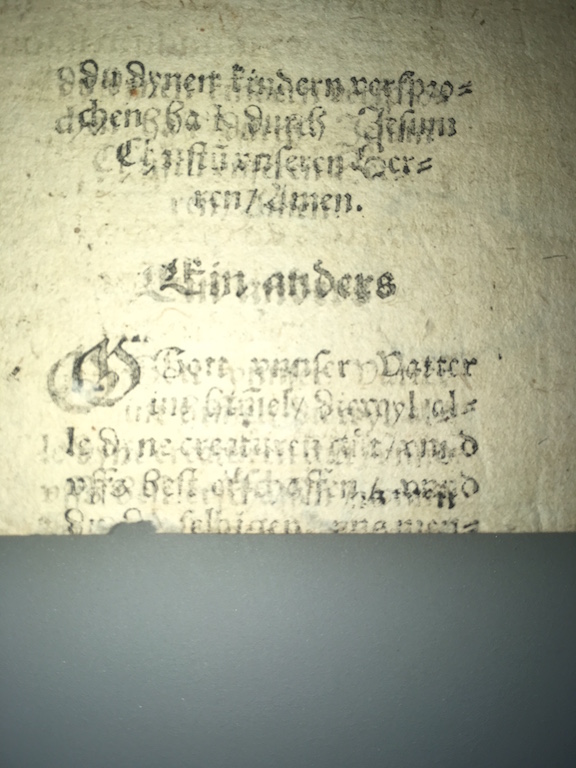 du dynen kindern verspro⸗
chen hast durch Jesum
Christū vnseren Her⸗
ren / Amen.
Ein anders
O Gott vnnser Vatter
im himel / diewyl al⸗
le dyne creaturen gůt / vnnd
vffs best erschaffen / vnnd
du die selbigen vns men⸗